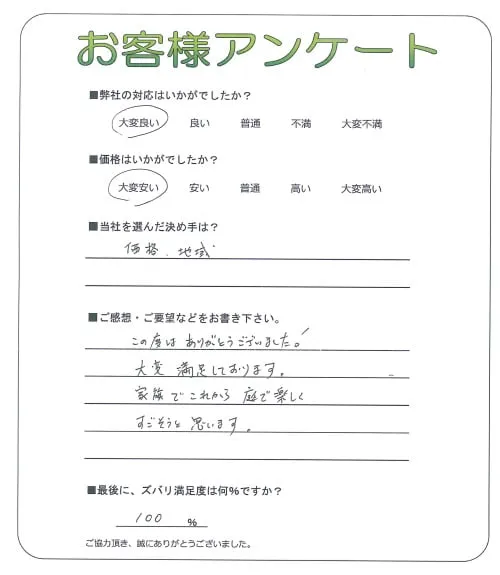 お客様アンケート
■弊社の対応はいかがでしたか？
大変良い 良い 普通 不満 大変不満
■価格はいかがでしたか？
大変安い 安い 普通 高い 大変高い
■当社を選んだ決め手は？
価格、地域
■ご感想・ご要望などをお書き下さい。
この度は ありがとうございました！
大変 満足しております。
家族で これから 庭で楽しく
すごそうと 思います。
■最後に、ズバリ満足度は何%ですか？
100 %
ご協力頂き、誠にありがとうございました。